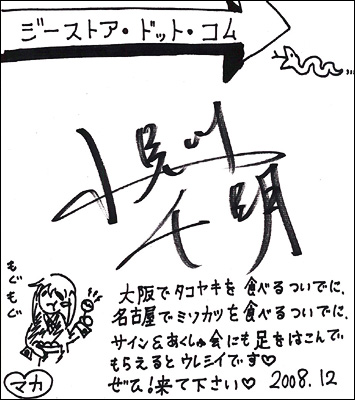 ジーストア・ドット・コム
小見川
千明
もぐ
もぐ
マカ
大阪でタコヤキを食べるついでに、
名古屋でミソカツを食べるついでに、
サイン&あくしゅ会にも足をはこんで
もらえるとウレシイです♡
ぜひ!来て下さい♡ 2008.12